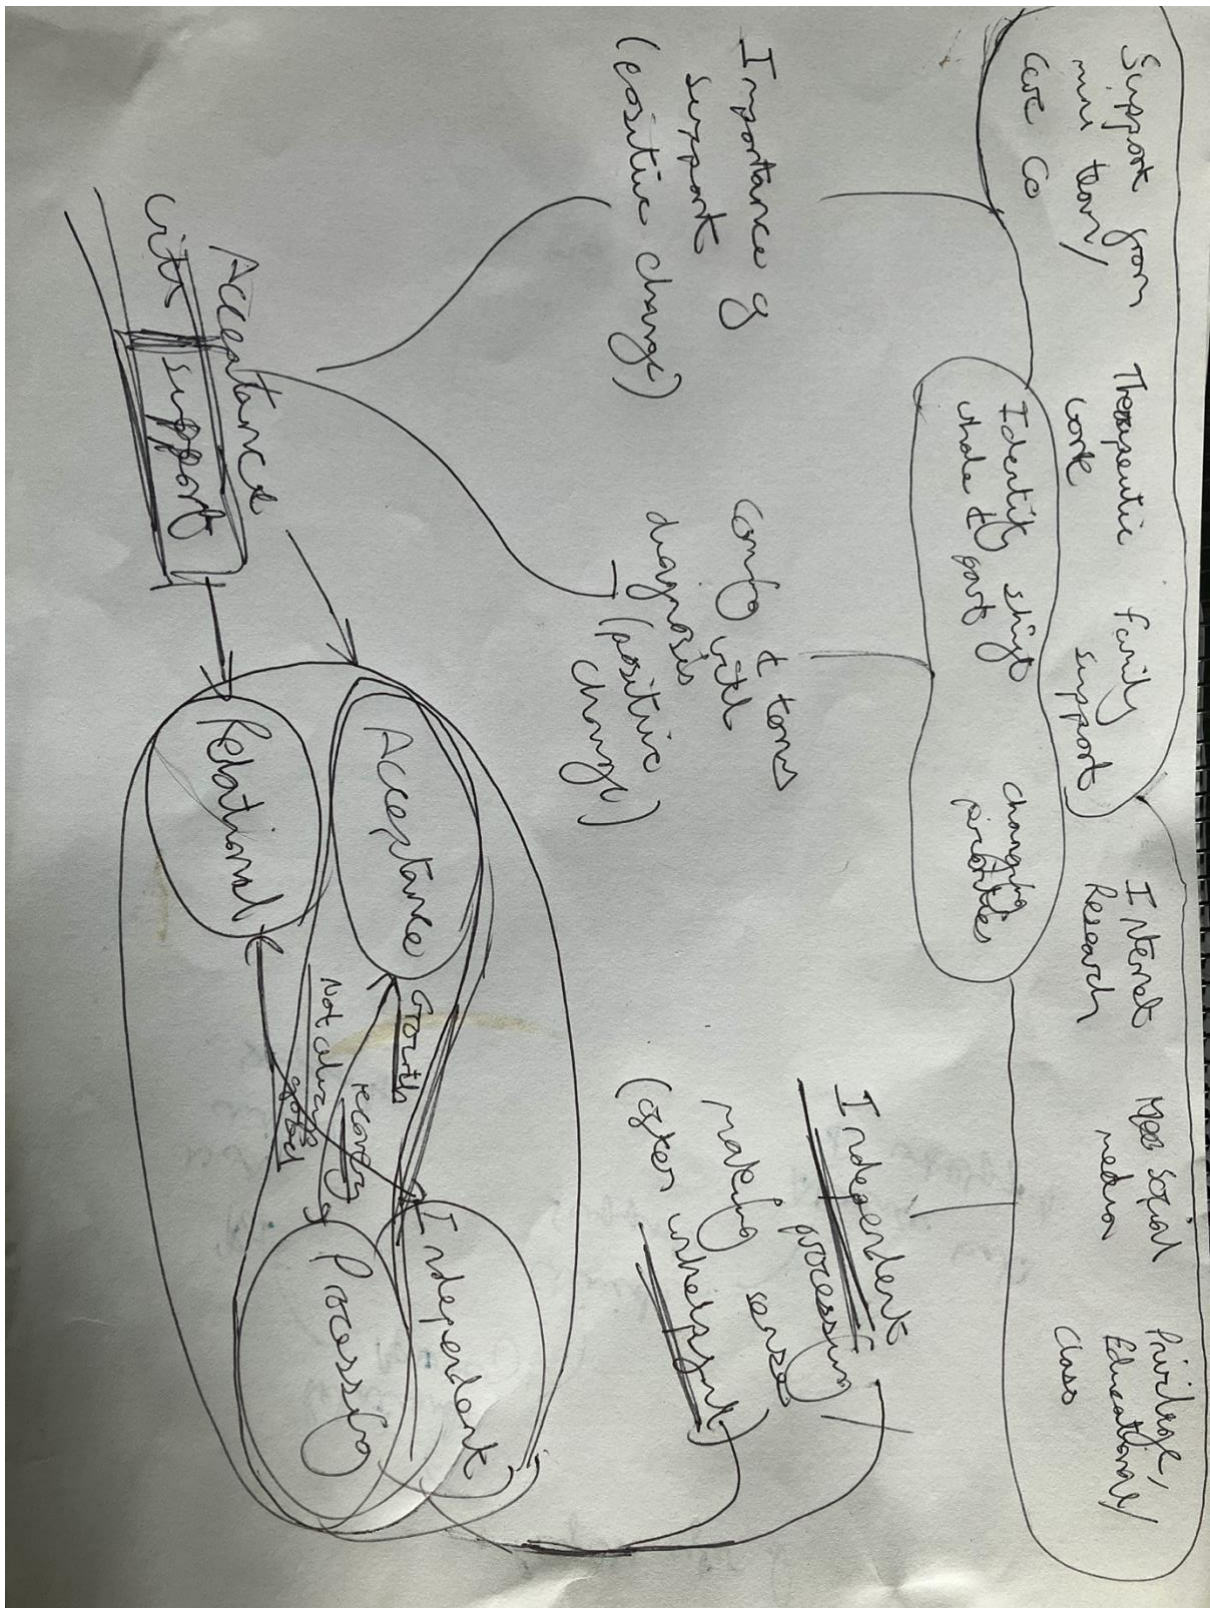 Support from
mini team/
care co
Therapeutic
work
family
support
Internet
Research
social
media
Privilege,
Educational/
Class
Identity shift
whole to part
changing
priorities
Importance of
support
(positive change)
Comf
with
diagnosis
(positive
change)
Independent
processing
making sense
(often unhelpful)
Acceptance
with support
Acceptance
Relational
Growth
recovery
Not always
Independent
Processing